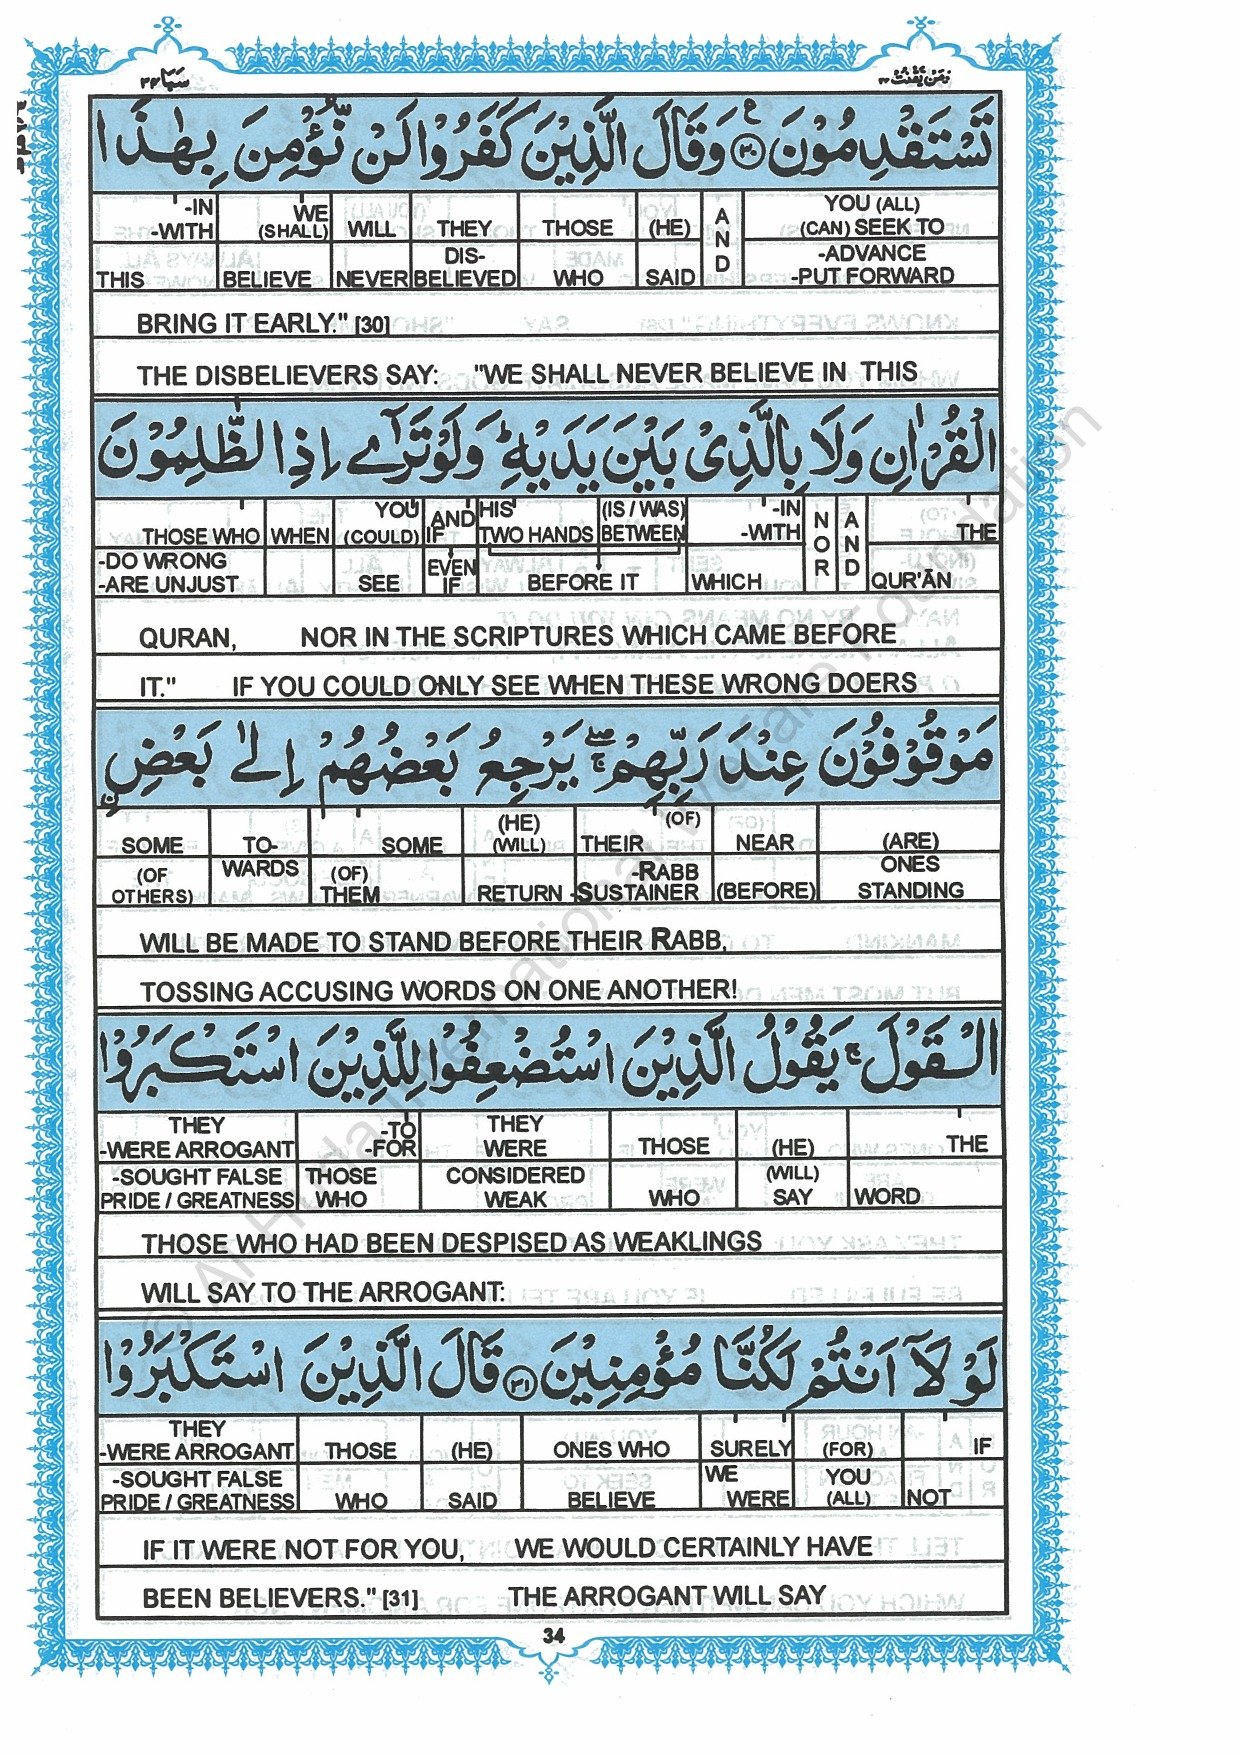 سَبَا ٣٤
وَمَنْ يَّقْنُتْ ٢٢
تَسْتَقْدِمُوْنَ ۟ع ٣٠ وَقَالَ الَّذِيْنَ كَفَرُوْا لَنْ نُّؤْمِنَ بِهٰذَا
-IN WE YOU (ALL)
-WITH (SHALL) WILL THEY THOSE (HE) AND (CAN) SEEK TO
DIS- -ADVANCE
THIS BELIEVE NEVER BELIEVED WHO SAID -PUT FORWARD
BRING IT EARLY." [30]
THE DISBELIEVERS SAY: "WE SHALL NEVER BELIEVE IN THIS
الْقُرْاٰنِ وَلَا بِالَّذِيْ بَيْنَ يَدَيْهِ ؕ وَلَوْ تَرٰٓى اِذِ الظّٰلِمُوْنَ
YOU AND HIS (IS / WAS) -IN
THOSE WHO WHEN (COULD) IF TWO HANDS BETWEEN -WITH NOR AND THE
-DO WRONG EVEN
-ARE UNJUST SEE IF BEFORE IT WHICH QUR'ĀN
QURAN, NOR IN THE SCRIPTURES WHICH CAME BEFORE
IT." IF YOU COULD ONLY SEE WHEN THESE WRONG DOERS
مَوْقُوْفُوْنَ عِنْدَ رَبِّهِمْ ۖۚ يَرْجِعُ بَعْضُهُمْ اِلٰى بَعْضِ ۨ
(HE) (OF)
SOME TO- SOME (WILL) THEIR NEAR (ARE)
(OF WARDS (OF) -RABB ONES
OTHERS) THEM RETURN -SUSTAINER (BEFORE) STANDING
WILL BE MADE TO STAND BEFORE THEIR RABB,
TOSSING ACCUSING WORDS ON ONE ANOTHER!
الْقَوْلَ ۚ يَقُوْلُ الَّذِيْنَ اسْتُضْعِفُوْا لِلَّذِيْنَ اسْتَكْبَرُوْا
THEY -TO THEY
-WERE ARROGANT -FOR WERE THOSE (HE) THE
-SOUGHT FALSE THOSE CONSIDERED (WILL)
PRIDE / GREATNESS WHO WEAK WHO SAY WORD
THOSE WHO HAD BEEN DESPISED AS WEAKLINGS
WILL SAY TO THE ARROGANT:
لَوْ لَاۤ اَنْتُمْ لَكُنَّا مُؤْمِنِيْنَ ٣١ قَالَ الَّذِيْنَ اسْتَكْبَرُوْا
THEY
-WERE ARROGANT THOSE (HE) ONES WHO SURELY (FOR) IF
-SOUGHT FALSE WE YOU
PRIDE / GREATNESS WHO SAID BELIEVE WERE (ALL) NOT
IF IT WERE NOT FOR YOU, WE WOULD CERTAINLY HAVE
BEEN BELIEVERS." [31] THE ARROGANT WILL SAY
34
© Al-Huda International Welfare Foundation